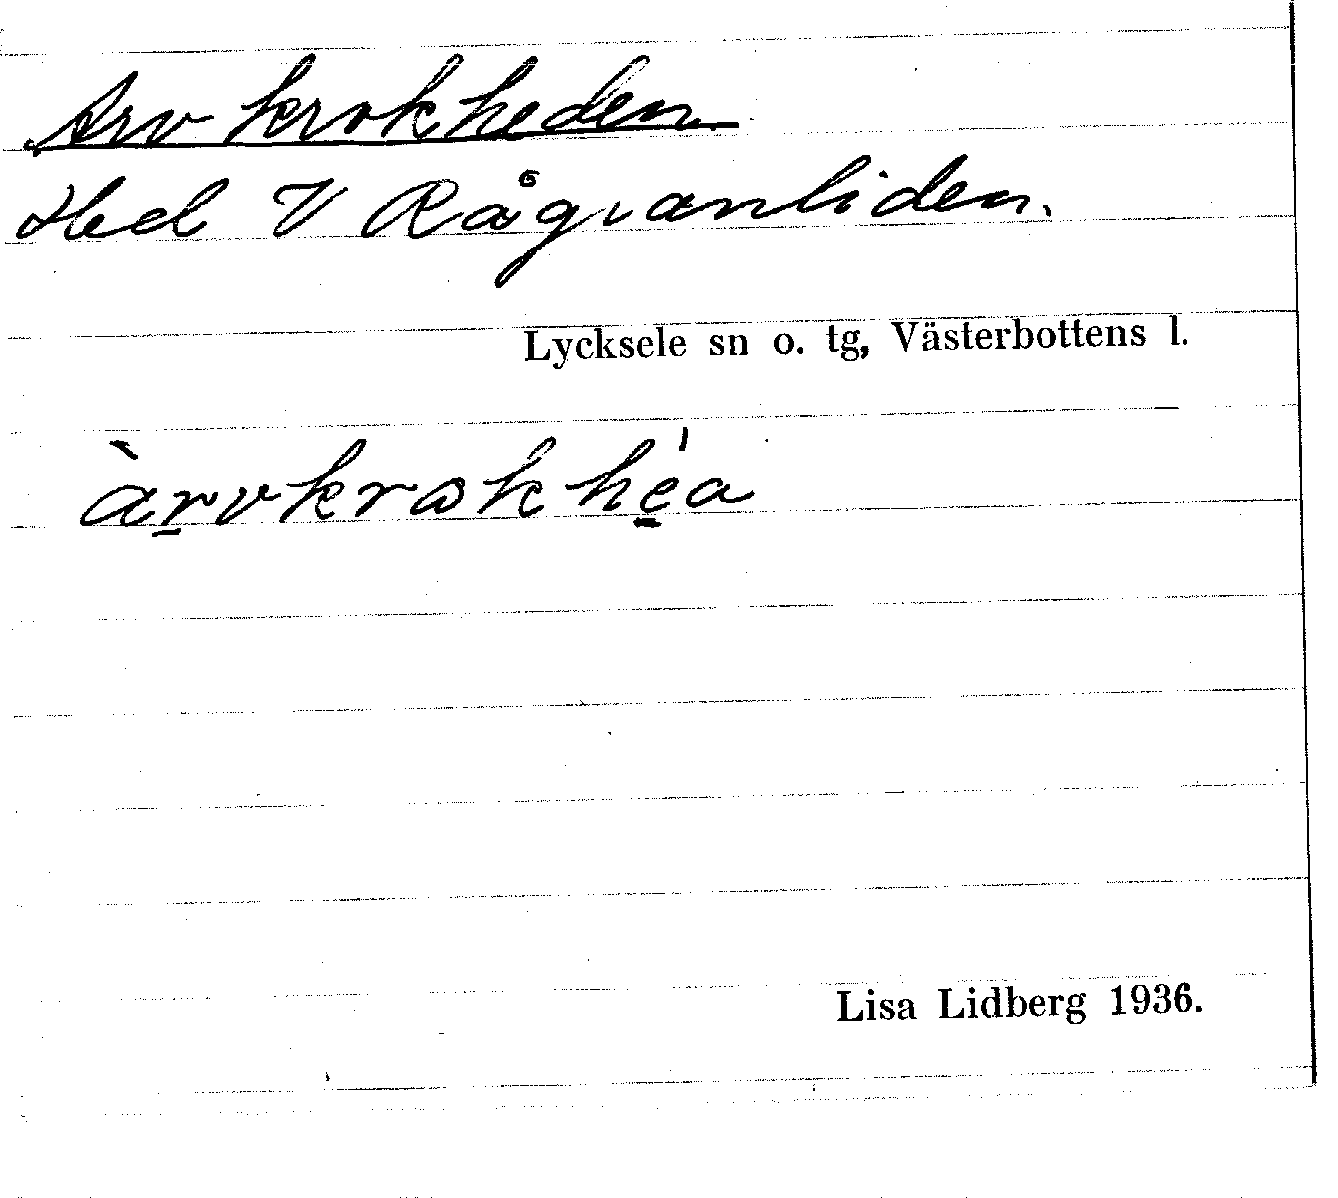 Arvkrokheden
Hed V Rågvanliden.
Lycksele sn o. tg, Västerbottens l.
àr̲vkrokhé̲a
Lisa Lidberg 1936.